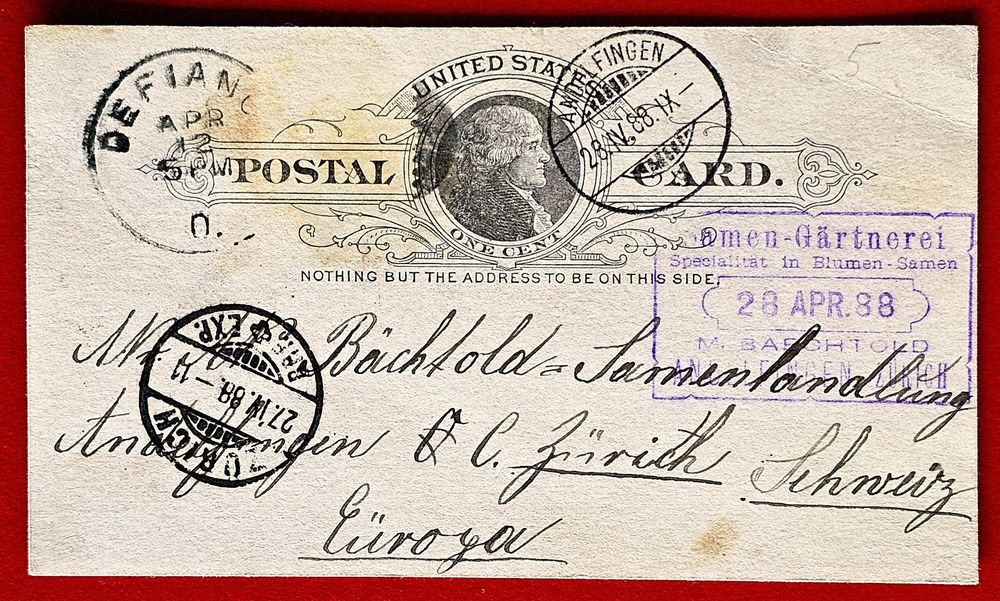 DEFIANC
APR
12
5 PM
O.
UNITED STATES
POSTAL CARD.
ONE CENT
NOTHING BUT THE ADDRESS TO BE ON THIS SIDE.
ANDELFINGEN
28.IV.88.IX-
Samen-Gärtnerei
Spezialität in Blumen-Samen
28 APR. 88
M. BAECHTOLD
ANDELFINGEN ZÜRICH
ZÜRICH
27.IV.88.-11
EXP.
Mr. Bächtold = Samenlandlung
Andelfingen C. Zürich Schweiz
Eüropa
5